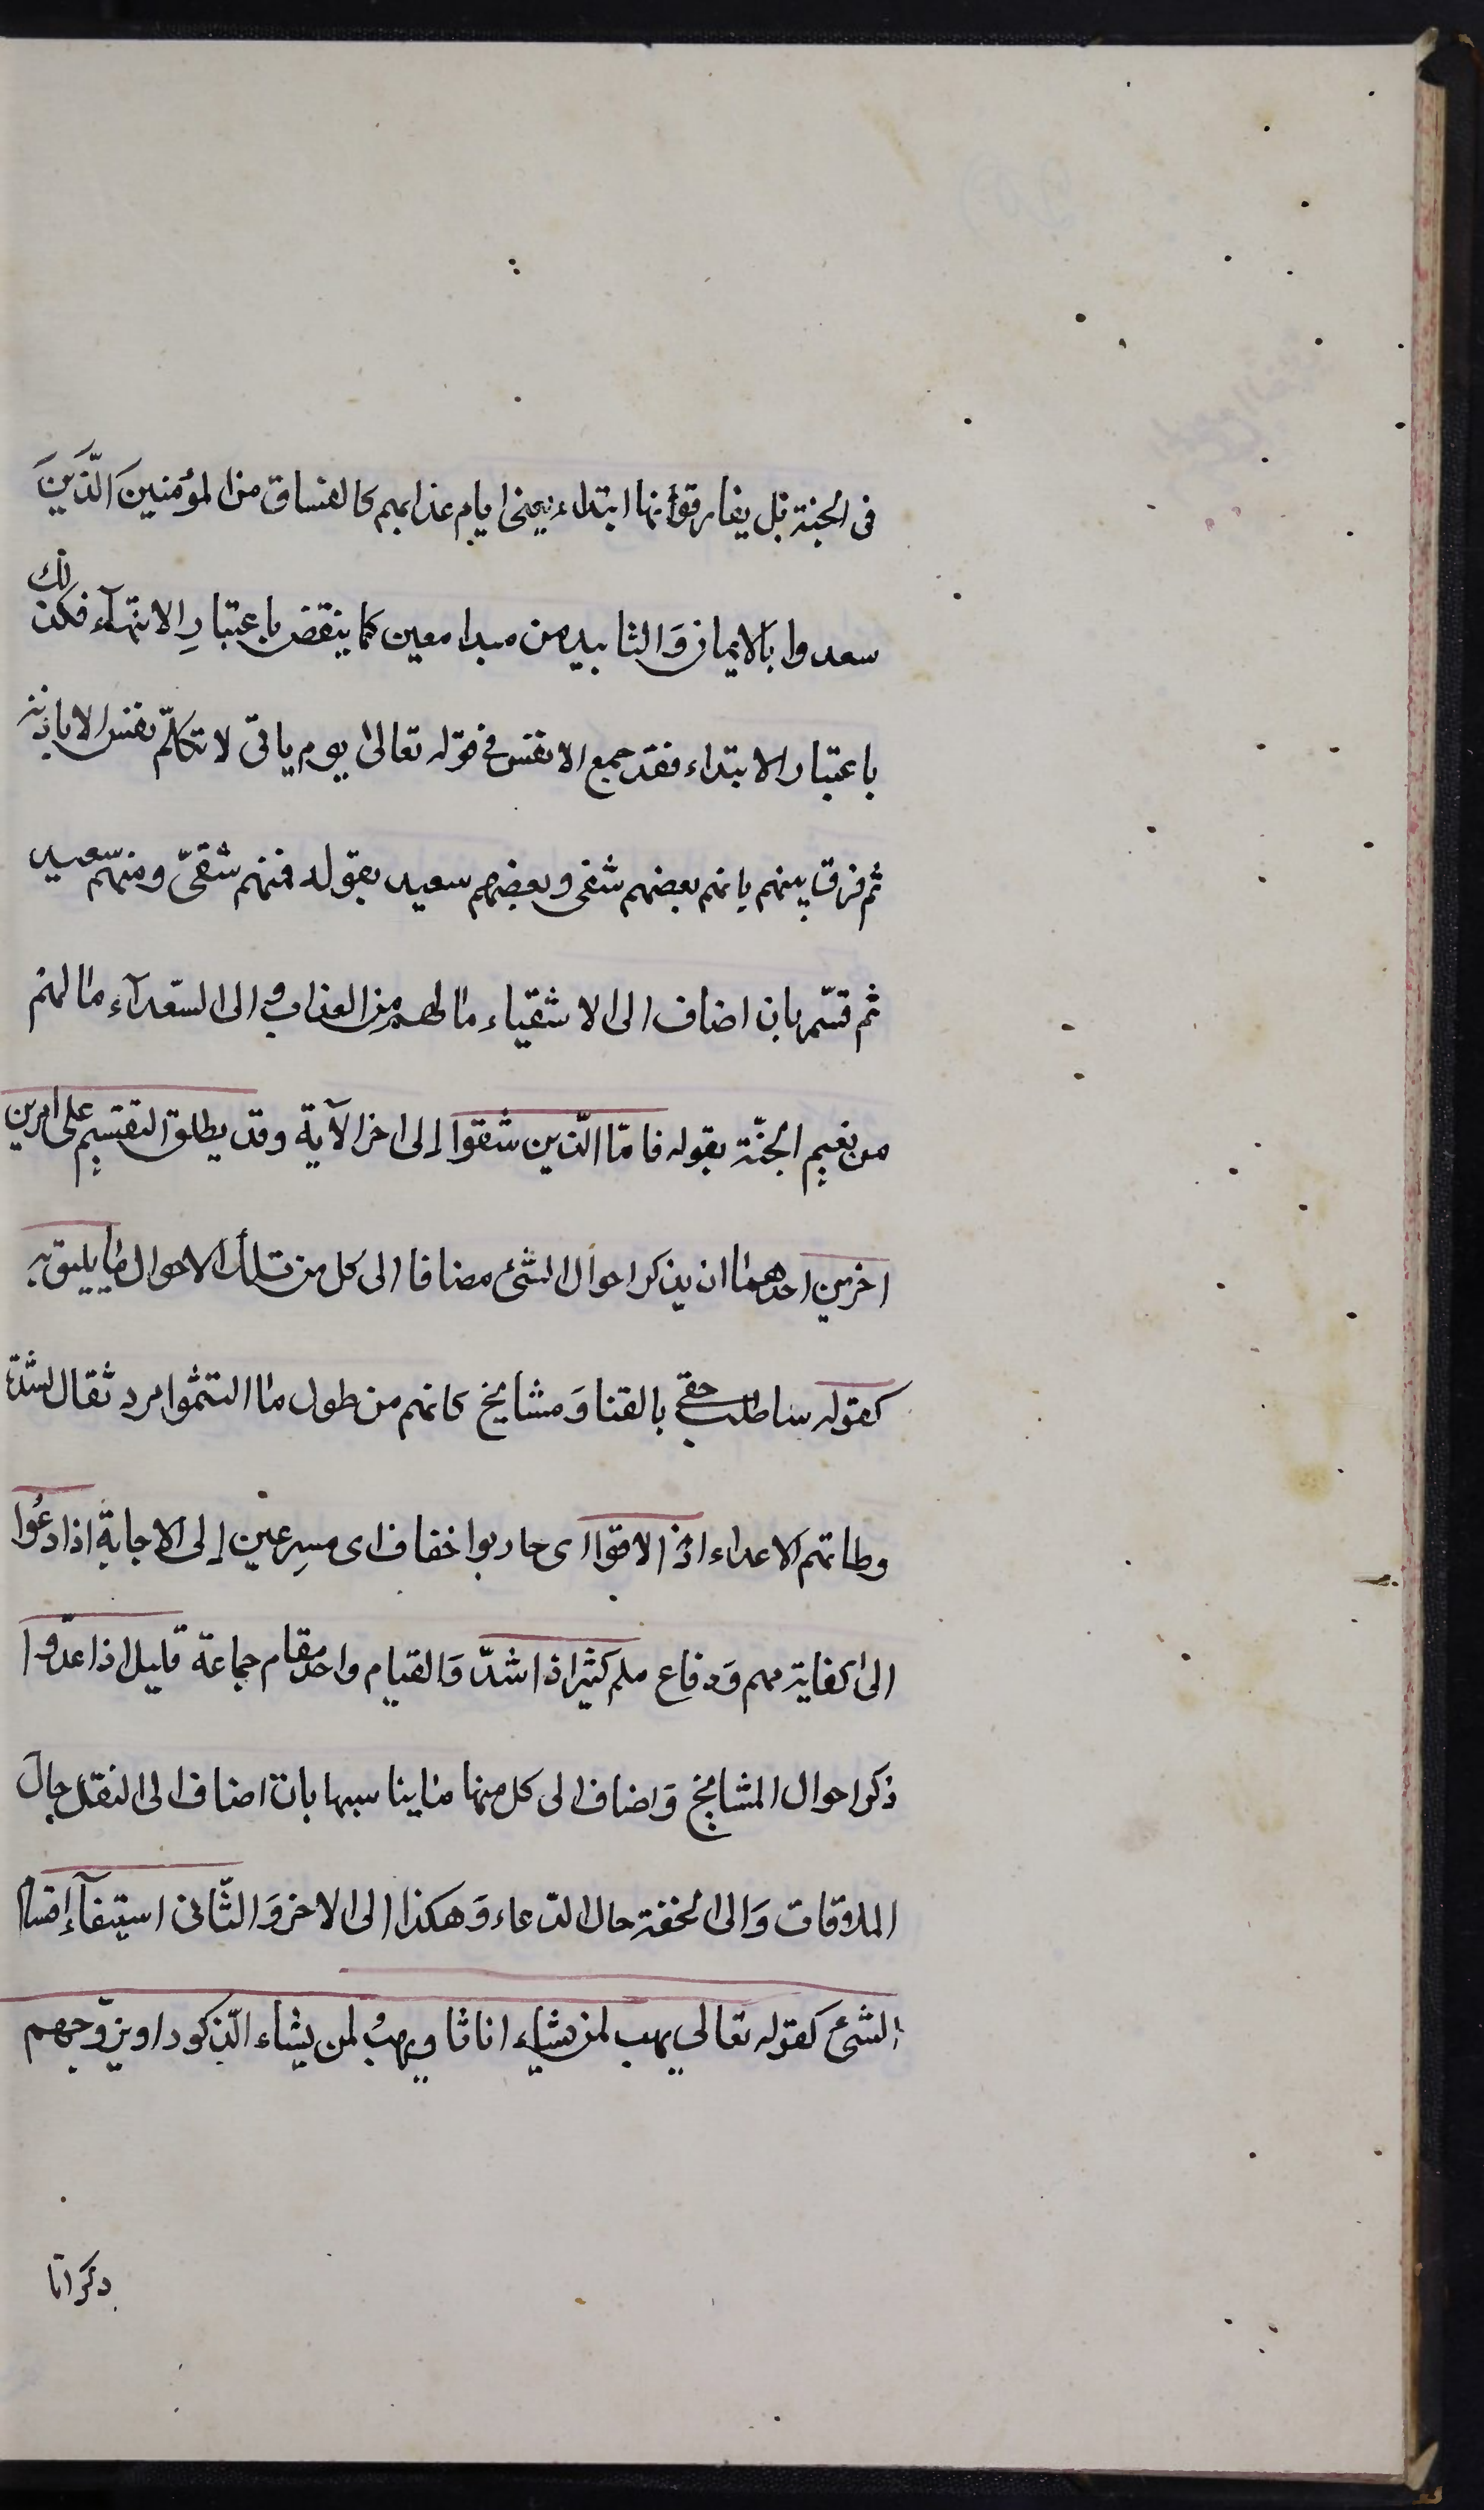 فى الجنة بل يفارقونها ابتداء يعنى ايام عذابهم كالفساق من المؤمنينَ الّذَينَ
سعدوا بالايمان وَالتابيد من مبدا معين كما ينقض باعتبارِ الانتهآء فكذلك
باعتبار الابتداء فقد جمع الانفس فى قوله تعالى يوم ياتى لا تكلّم نفس الا باذنه
ثم فرق بينهم بانهم بعضهم شقى وبعضهم سعيد بقوله فمنهم شقىّ ومنهم سعيد
ثم قسّم بان اضاف الى الاشقياء ما لهم من العذاب والى السّعدآء ما لهم
من نعيم الجنّة بقوله فامّا الّذين شقوا إلى اخر الآية وقد يطلق التقسيم على امرين
اخرين احدهما ان يذكر احوال الشئ مضافا الى كل من تلك الاحوال ما يليق به
كقوله ساطلب حقى بالقنا وَمشايخ كانهم من طول ما التثموا مرد ثقال لشدّة
وطاتهم الاعداء اذا لاقوا اى حاربوا خفاف اى مسرِعين إلى الاجابة اذا دعُوا
الى كفاية مهم وَدفاع ملم كثير اذا شدّ وَالقيام واحد مقام جماعة قليل اذا عدّوا
ذكر احوال المشايخ وَاضاف الى كل منها ما يناسبها بان اضاف الى الثقل حال
الملاقات وَالى الخفة حال الدّعاء وَهكذا الى الاخر وَالثّانى استيفآء اقسام
الشئ كقوله تعالى يهب لمن يشاء اناثا ويهبُ لمن يشاء الّذكور او يزوّجهم
ذكرانا